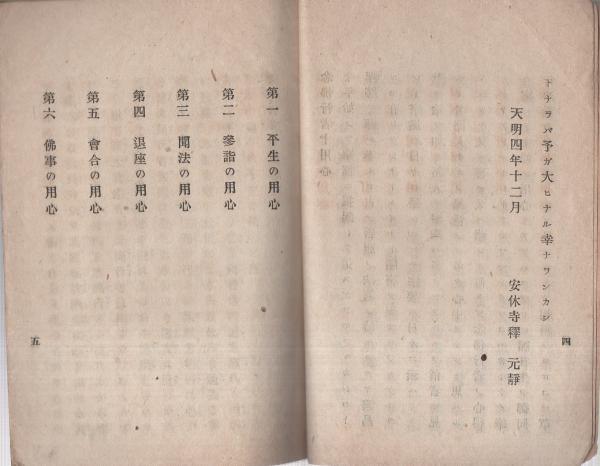 トナラバ予ガ大ヒナル幸ナランカシ
天明四年十二月　安休寺釋　元靜
四
第一　平生の用心
第二　參詣の用心
第三　聞法の用心
第四　退座の用心
第五　會合の用心
第六　佛事の用心
五